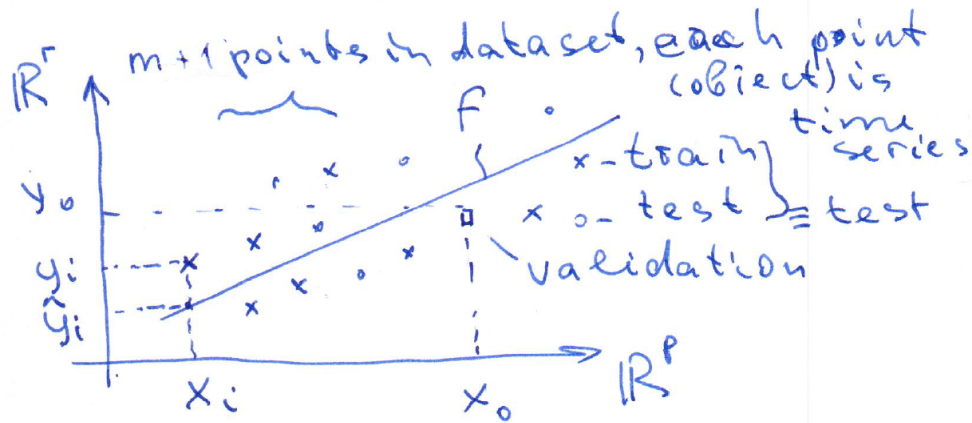 ℝʳ m+1 points in dataset, each point
(object) is
time
series
f
x - train
o - test } ≡ test
validation
y₀
yᵢ
ŷᵢ
xᵢ
x₀
ℝᵖ